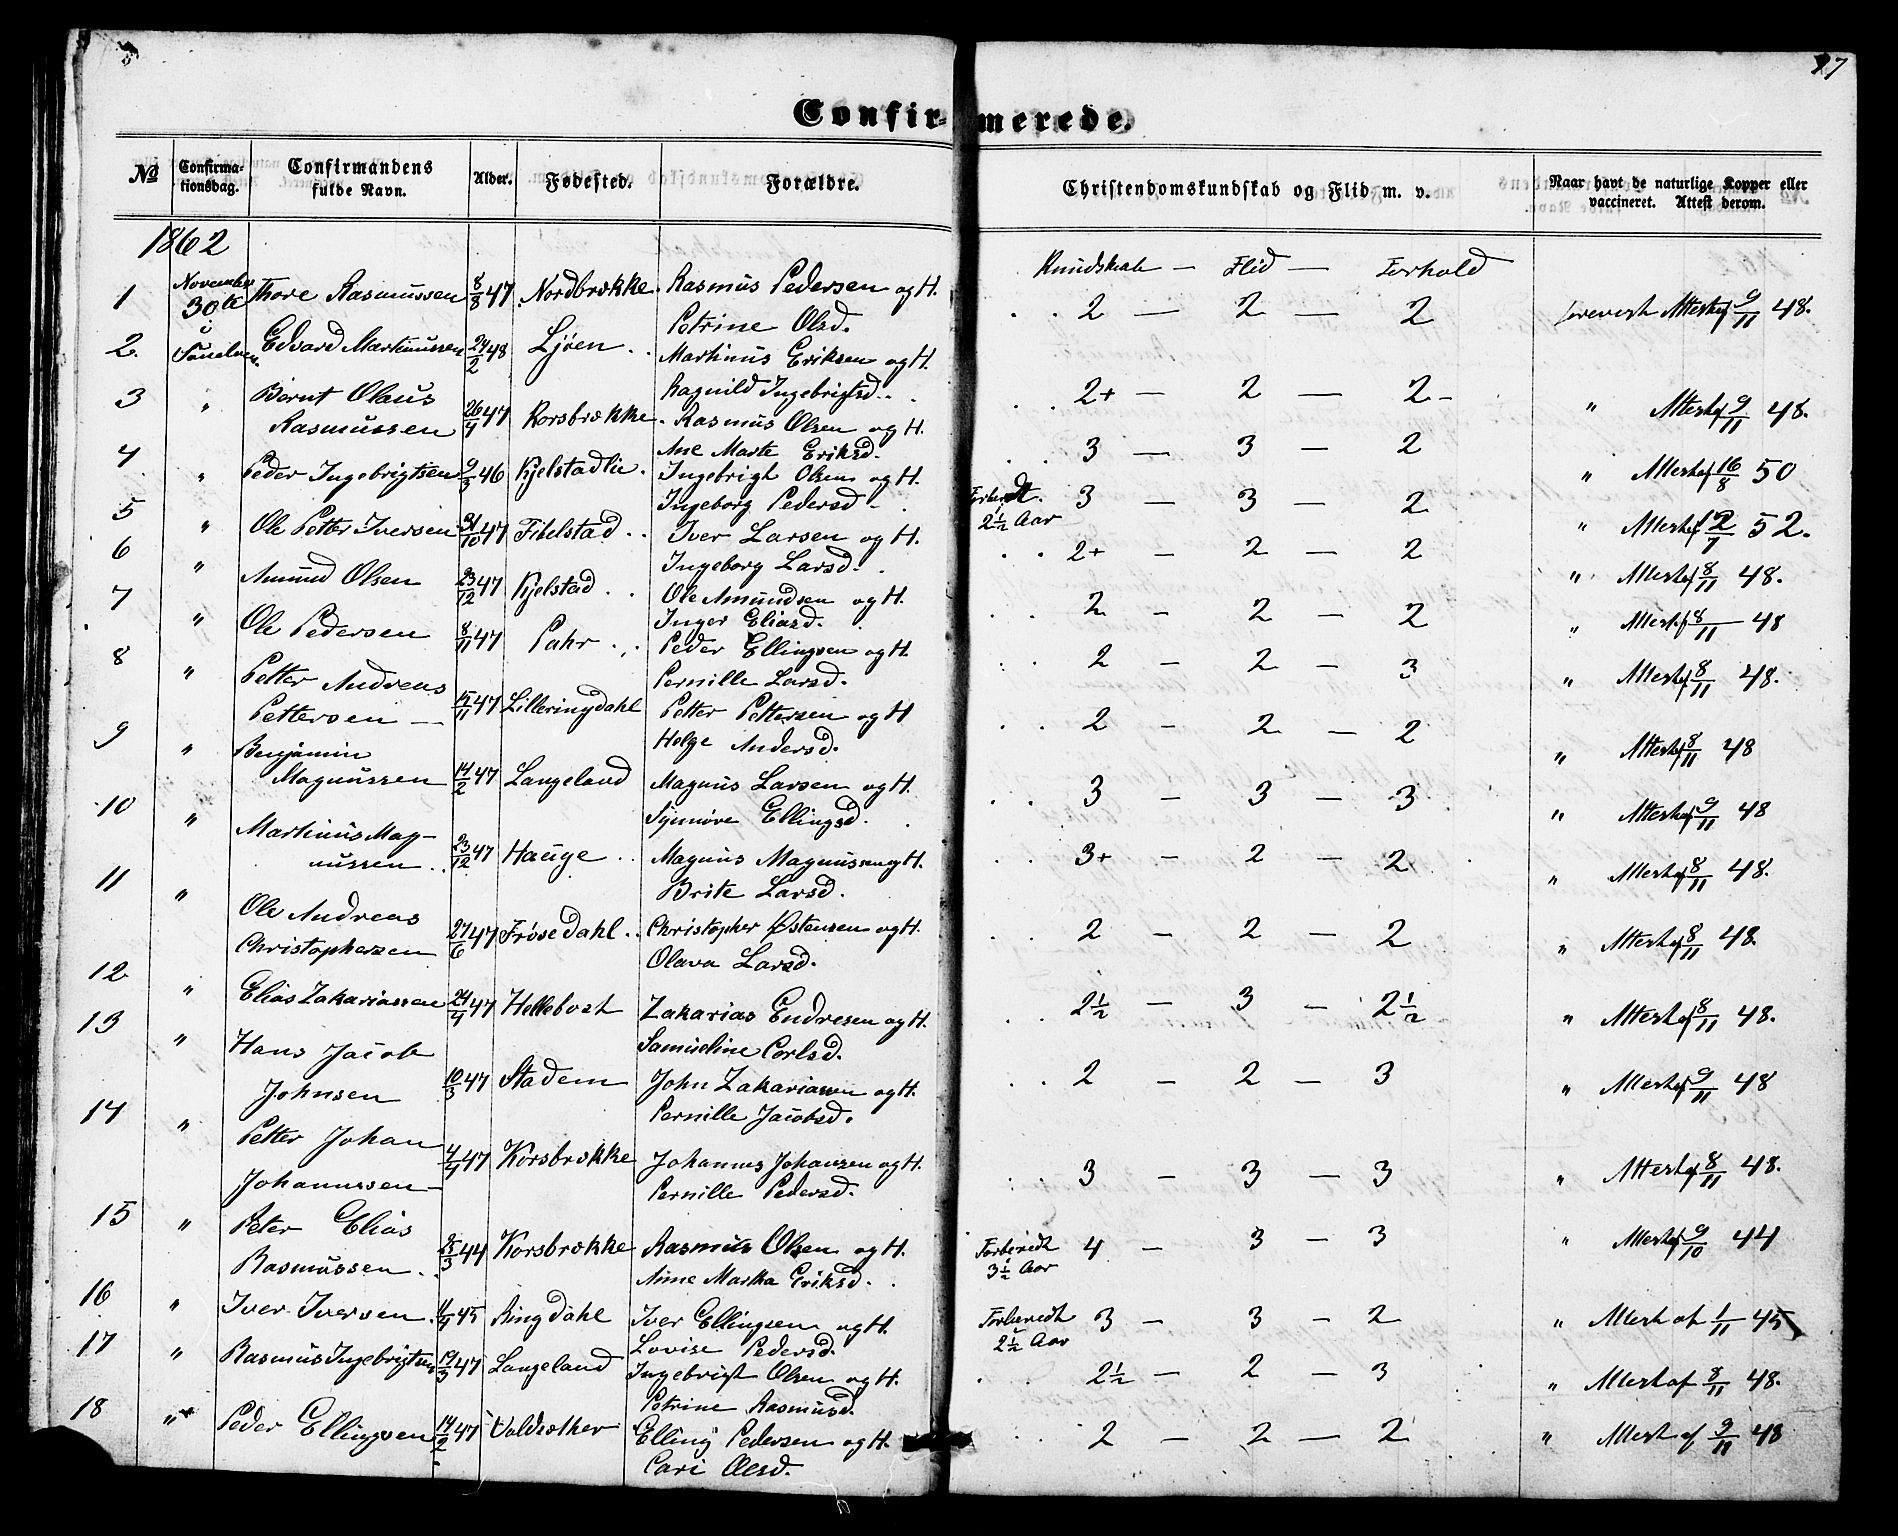 27
Confirmerede.
№ Confirmationsdag. Confirmandens fulde Navn. Alder. Fødested. Forældre. Christendomskundskab og Flid m. v. Naar havt de naturlige Kopper eller vaccineret. Attest derom.
1862
Kundskab — Flid — Forhold
1 November 30te i Sunelven Thore Rasmussen 8/8 47 Nordbrække Rasmus Pedersen og H. Petrine Olsd. 2 — 2 — 2 Attest af 9/11 48.
2. Edvard Martinussen 24/2 48 Ljøen Martinus Eriksen og H. Ragnild Ingebrigtsd. 2+ — 2 — 2 " Attest af 9/11 48.
3 " Bernt Olaus Rasmussen 26/4 47 Korsbrække Rasmus Olsen og H. Ane Marte Eriksd. 3 — 3 — 2 " Attest af 16/8 50
4 " Peder Ingebrigtsen 9/3 46 Kjelstadlie Ingebrigt Olsen og H. Ingeborg Pedersd. Forberedt. 2½ Aar 3 — 3 — 2 " Attest af 2/7 52.
5 " Ole Petter Iversen 31/10 47 Fibelstad Iver Larsen og H. Ingeborg Larsd. 2+ — 2 — 2 " Attest af 8/11 48.
6 " Amund Olsen 23/12 47 Kjelstad Ole Amundsen og H. Inger Eliasd. 2 — 2 — 2 " Attest af 8/11 48
7 " Ole Pedersen 8/11 47 Pahr Peder Ellingsen og H. Pernille Larsd. 2 — 2 — 3 " Attest af 8/11 48.
8 " Petter Andreas Pettersen — 15/11 47 Lilleringdahl Petter Pettersen og H Helge Andersd. 2 — 2 — 2 " Attest af 8/11 48
9 " Benjamin Magnussen 14/2 47 Langeland Magnus Larsen og H. Synnøve Ellingsd. 3 — 3 — 3 " Attest af 9/11 48
10 " Martinus Magnussen 23/12 47 Hauge Magnus Magnussen og H. Brite Larsd. 3+ — 2 — 2 " Attest af 8/11 48.
11 " Ole Andreas Christophersen 27/6 47 Frøsedahl Christopher Østensen og H. Olava Larsd. 2 — 2 — 2 " Attest af 8/11 48.
12 " Elias Zakariassen 24/4 47 Hellebost Zakarias Endresen og H. Samueline Carlsd. 2½ — 3 — 2½ " Attest af 8/11 48.
13 " Hans Jacob Johnsen 10/3 47 Stadem John Zakariassen og H. Pernille Jacobsd. 2 — 2 — 3 " Attest af 9/11 48
14 " Petter Johan Johannessen — 4/4 47 Korsbrække Johannes Johansen og H. Pernille Pedersd. 3 — 3 — 3 " Attest af 8/11 48.
15 " Peter Elias Rasmussen 25/3 44 Korsbrække Rasmus Olsen og H. Anne Martha Eriksd. Forberedt 3½ Aar 4 — 3 — 3 " Attest af 9/10 44
16 " Iver Iversen 45 Ringdahl Iver Ellingsen og H. Lovise Pedersd. Forberedt 2½ Aar 3 — 3 — 2 " Attest af 1/11 45
17 " Rasmus Ingebrigtsen 19/3 47 Langeland Ingebrigt Olsen og H. Petrine Rasmusd. 2½ — 2 — 3 " Attest af 8/11 48.
18 " Peder Ellingsen 14/2 47 Elling Pedersen og H. Cari Olsd. 2 — 2 — 2 " Attest af 9/11 48